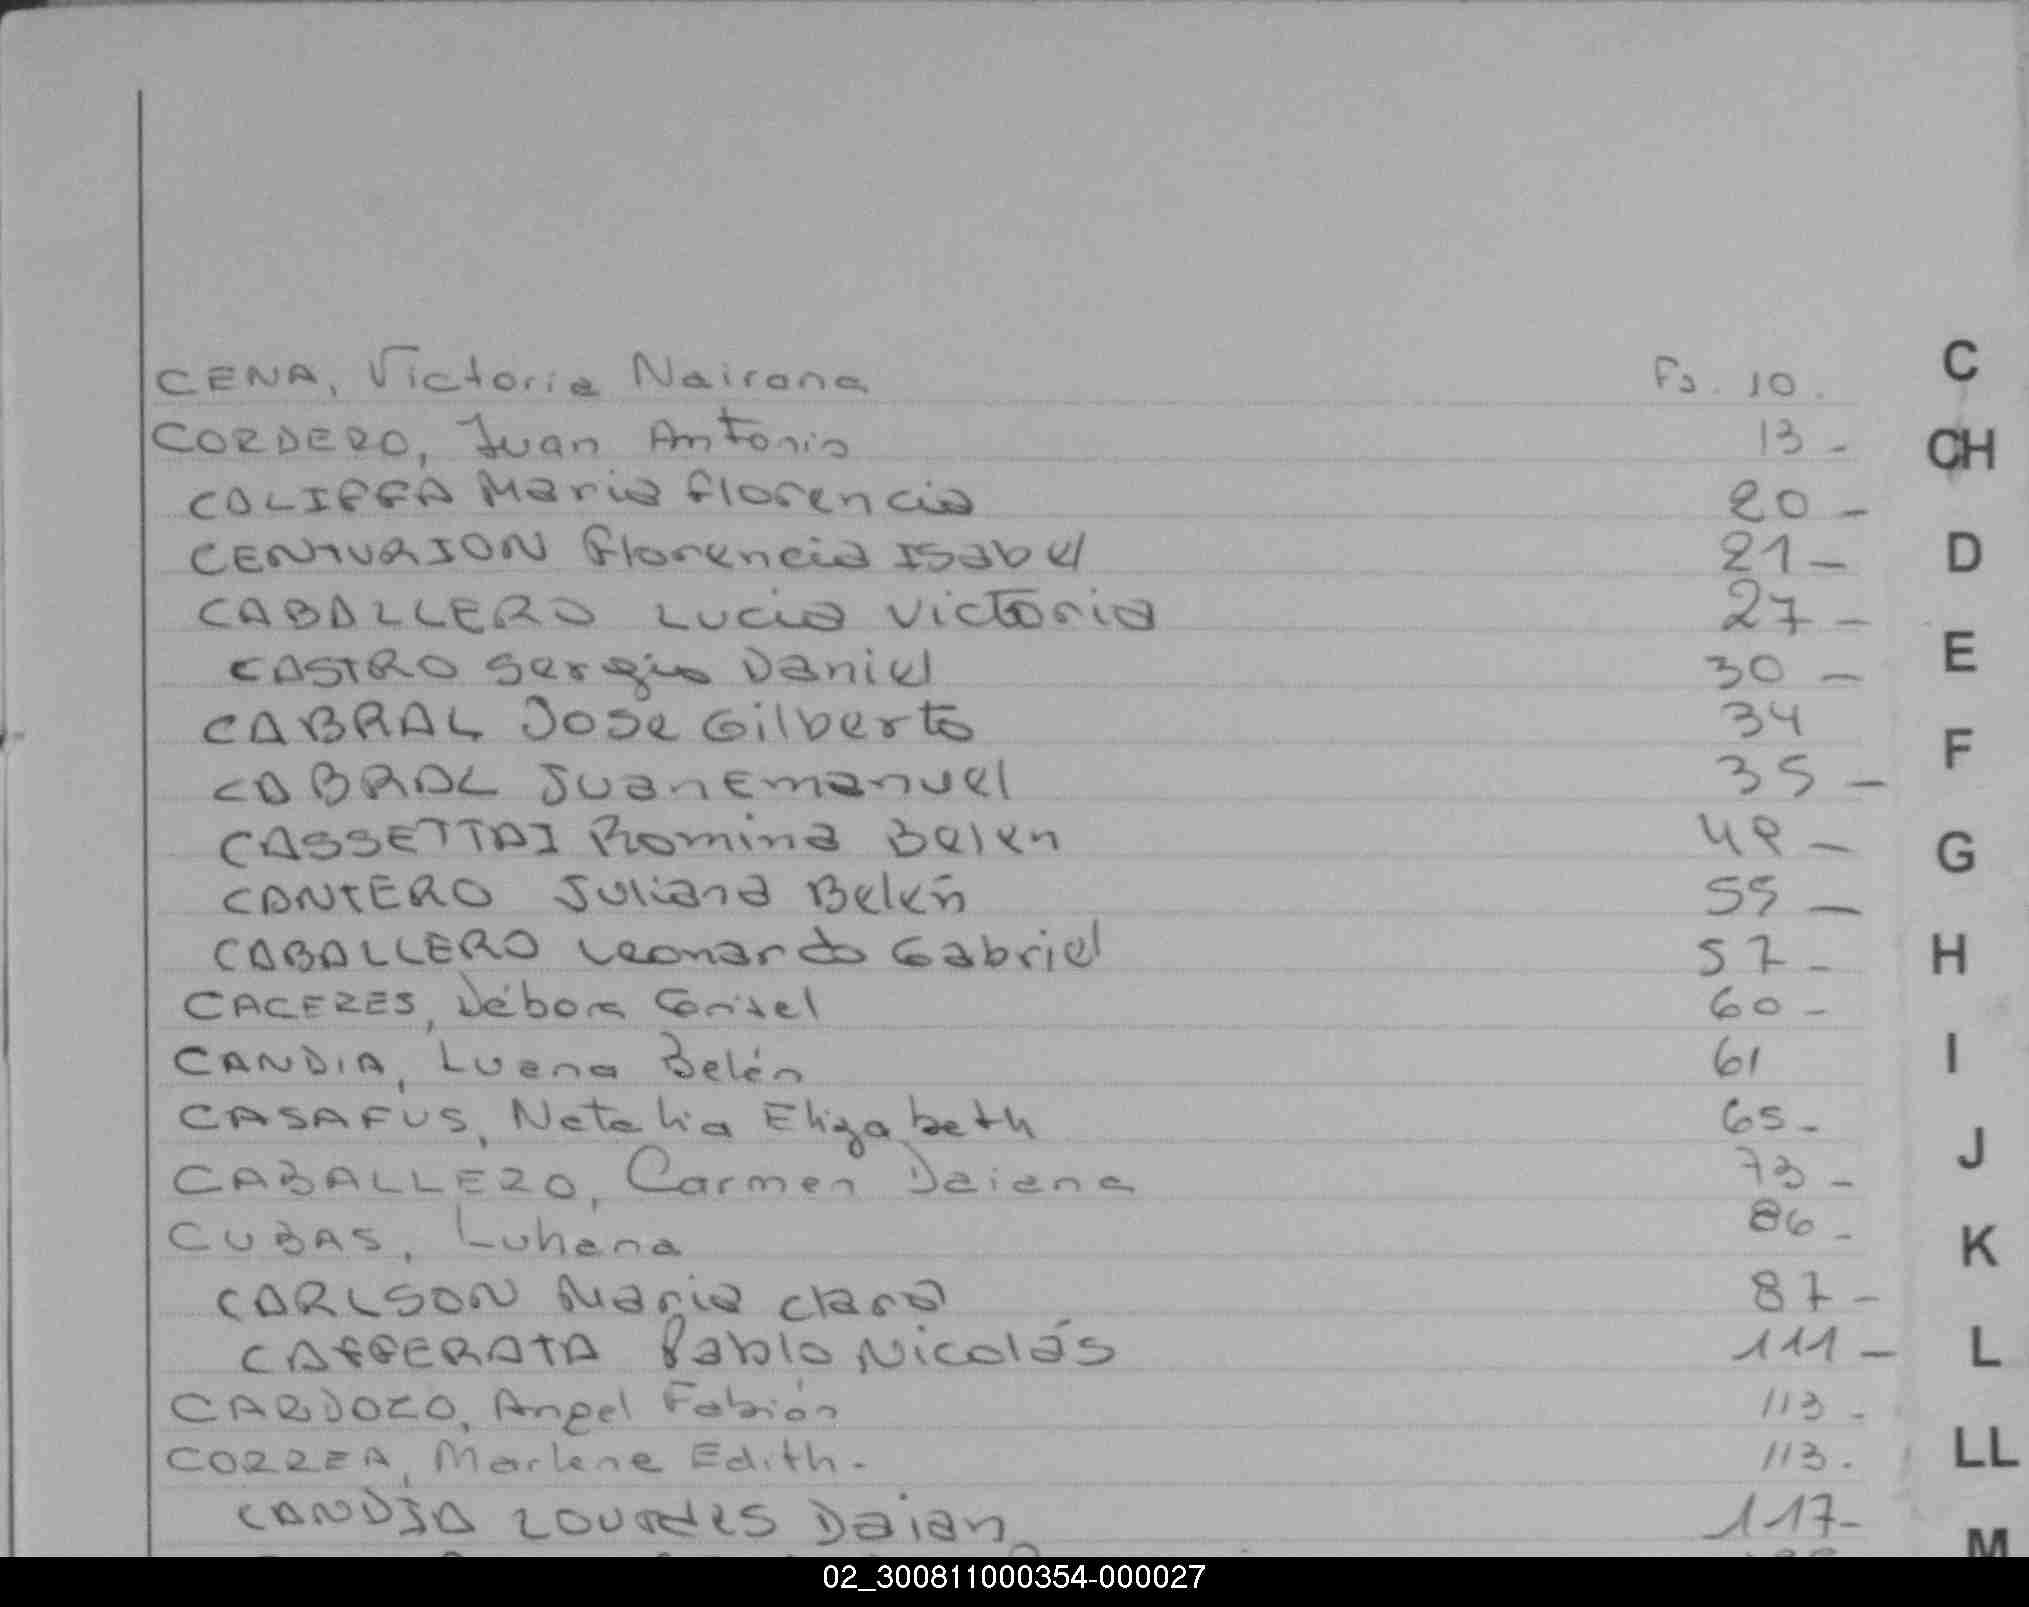 CENA, Victoria Nairana Fs. 10.
CORDERO, Juan Antonio 13 -
CALIFFA Maria florencia 20 -
CENTURION florencia Isabel 21 -
CABALLERO Lucia Victoria 27 -
CASTRO Sergio Daniel 30 -
CABRAL Jose Gilberto 34
CABRAL Juan Emanuel 35 -
CASSETTAI Romina Belen 49 -
CANTERO Juliana Belén 55 -
CABALLERO Leonardo Gabriel 57 -
CACERES, Débora 60 -
CANDIA, Luana Belén 61
CASAFUS, Natalia Elizabeth 65 -
CABALLERO, Carmen Daiana 73 -
CUBAS, Luhana 86 -
CARLSON Maria Clara 87 -
CAFFERATA Pablo Nicolás 111 -
CARDOZO, Angel Fabián 113 -
CORREA, Marlene Edith. 113.
CANDIA Lourdes Daian 117 -
C
CH
D
E
F
G
H
I
J
K
L
LL
M
02_300811000354-000027